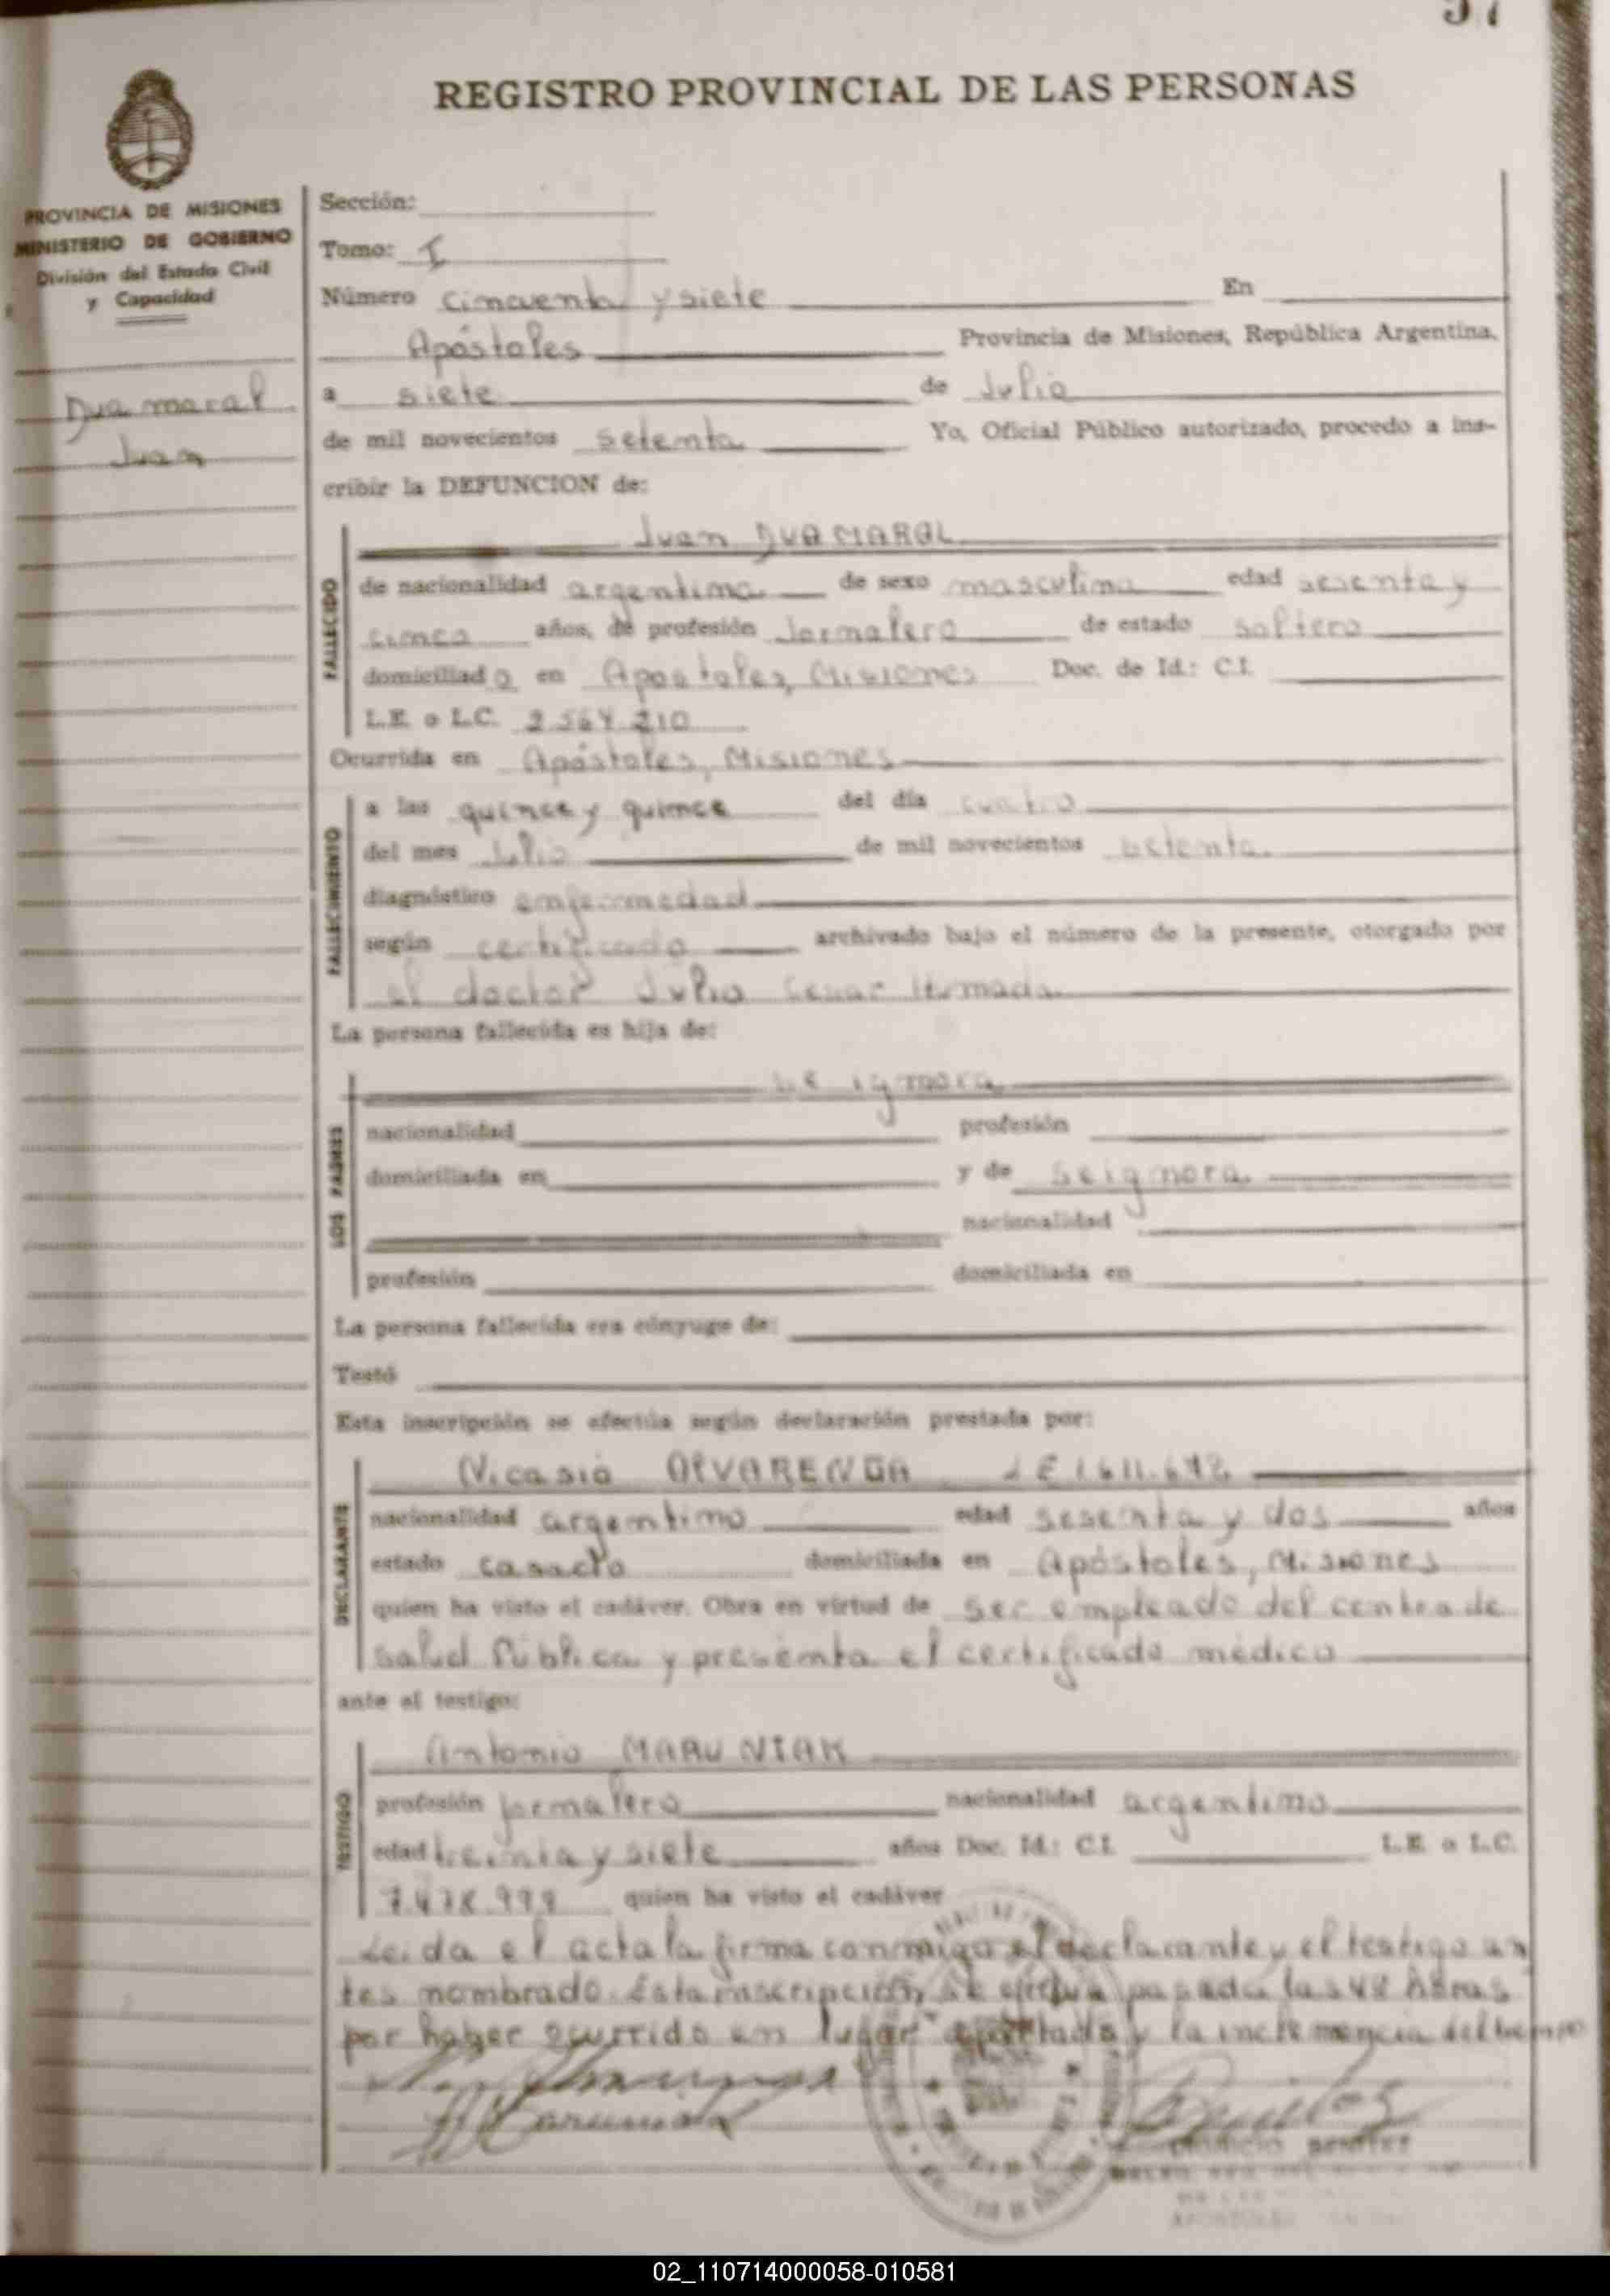 57
REGISTRO PROVINCIAL DE LAS PERSONAS
PROVINCIA DE MISIONES
MINISTERIO DE GOBIERNO
División del Estado Civil
y Capacidad
Duamaral
Juan
Sección:
Tomo: I
Número cincuenta y siete En
Apóstoles Provincia de Misiones, República Argentina,
a siete de Julio
de mil novecientos setenta Yo, Oficial Público autorizado, procedo a ins-
cribir la DEFUNCION de:
FALLECIDO
Juan DUAMARAL
de nacionalidad argentina de sexo masculino edad sesenta y
cinco años, de profesión Jornalero de estado soltero
domiciliado en Apostoles, Misiones Doc. de Id.: C.I.
L.E. o L.C. 2.564.210
Ocurrida en Apóstoles, Misiones
FALLECIMIENTO
a las quince y quince del día cuatro
del mes Julio de mil novecientos setenta
diagnóstico enfermedad
según certificado archivado bajo el número de la presente, otorgado por
el doctor Julio Cesar
La persona fallecida es hija de:
LOS PADRES
se ignora
nacionalidad profesión
domiciliada en y de se ignora
nacionalidad
profesión domiciliada en
La persona fallecida era cónyuge de:
Testó
Esta inscripción se efectúa según declaración prestada por:
DECLARANTE
Nicasio ALVARENGA L E 1.611.
nacionalidad argentino edad sesenta y dos años
estado casado domiciliada en Apóstoles, Misiones
quien ha visto el cadáver. Obra en virtud de ser empleado del centro de
salud Pública y presenta el certificado médico
ante el testigo:
TESTIGO
Antonio MARUNIAK
profesión jornalero nacionalidad argentino
edad treinta y siete años Doc. Id.: C.I. L.E. o L.C.
7.478. quien ha visto el cadáver
Leida el acta la firma conmigo el declarante y el testigo an
tes nombrado. Esta inscripción se efectua pasada las 48 horas
por haber ocurrido en lugar apartado y la inclemencia del tiempo
BENITEZ
APOSTOLES
02_110714000058-010581